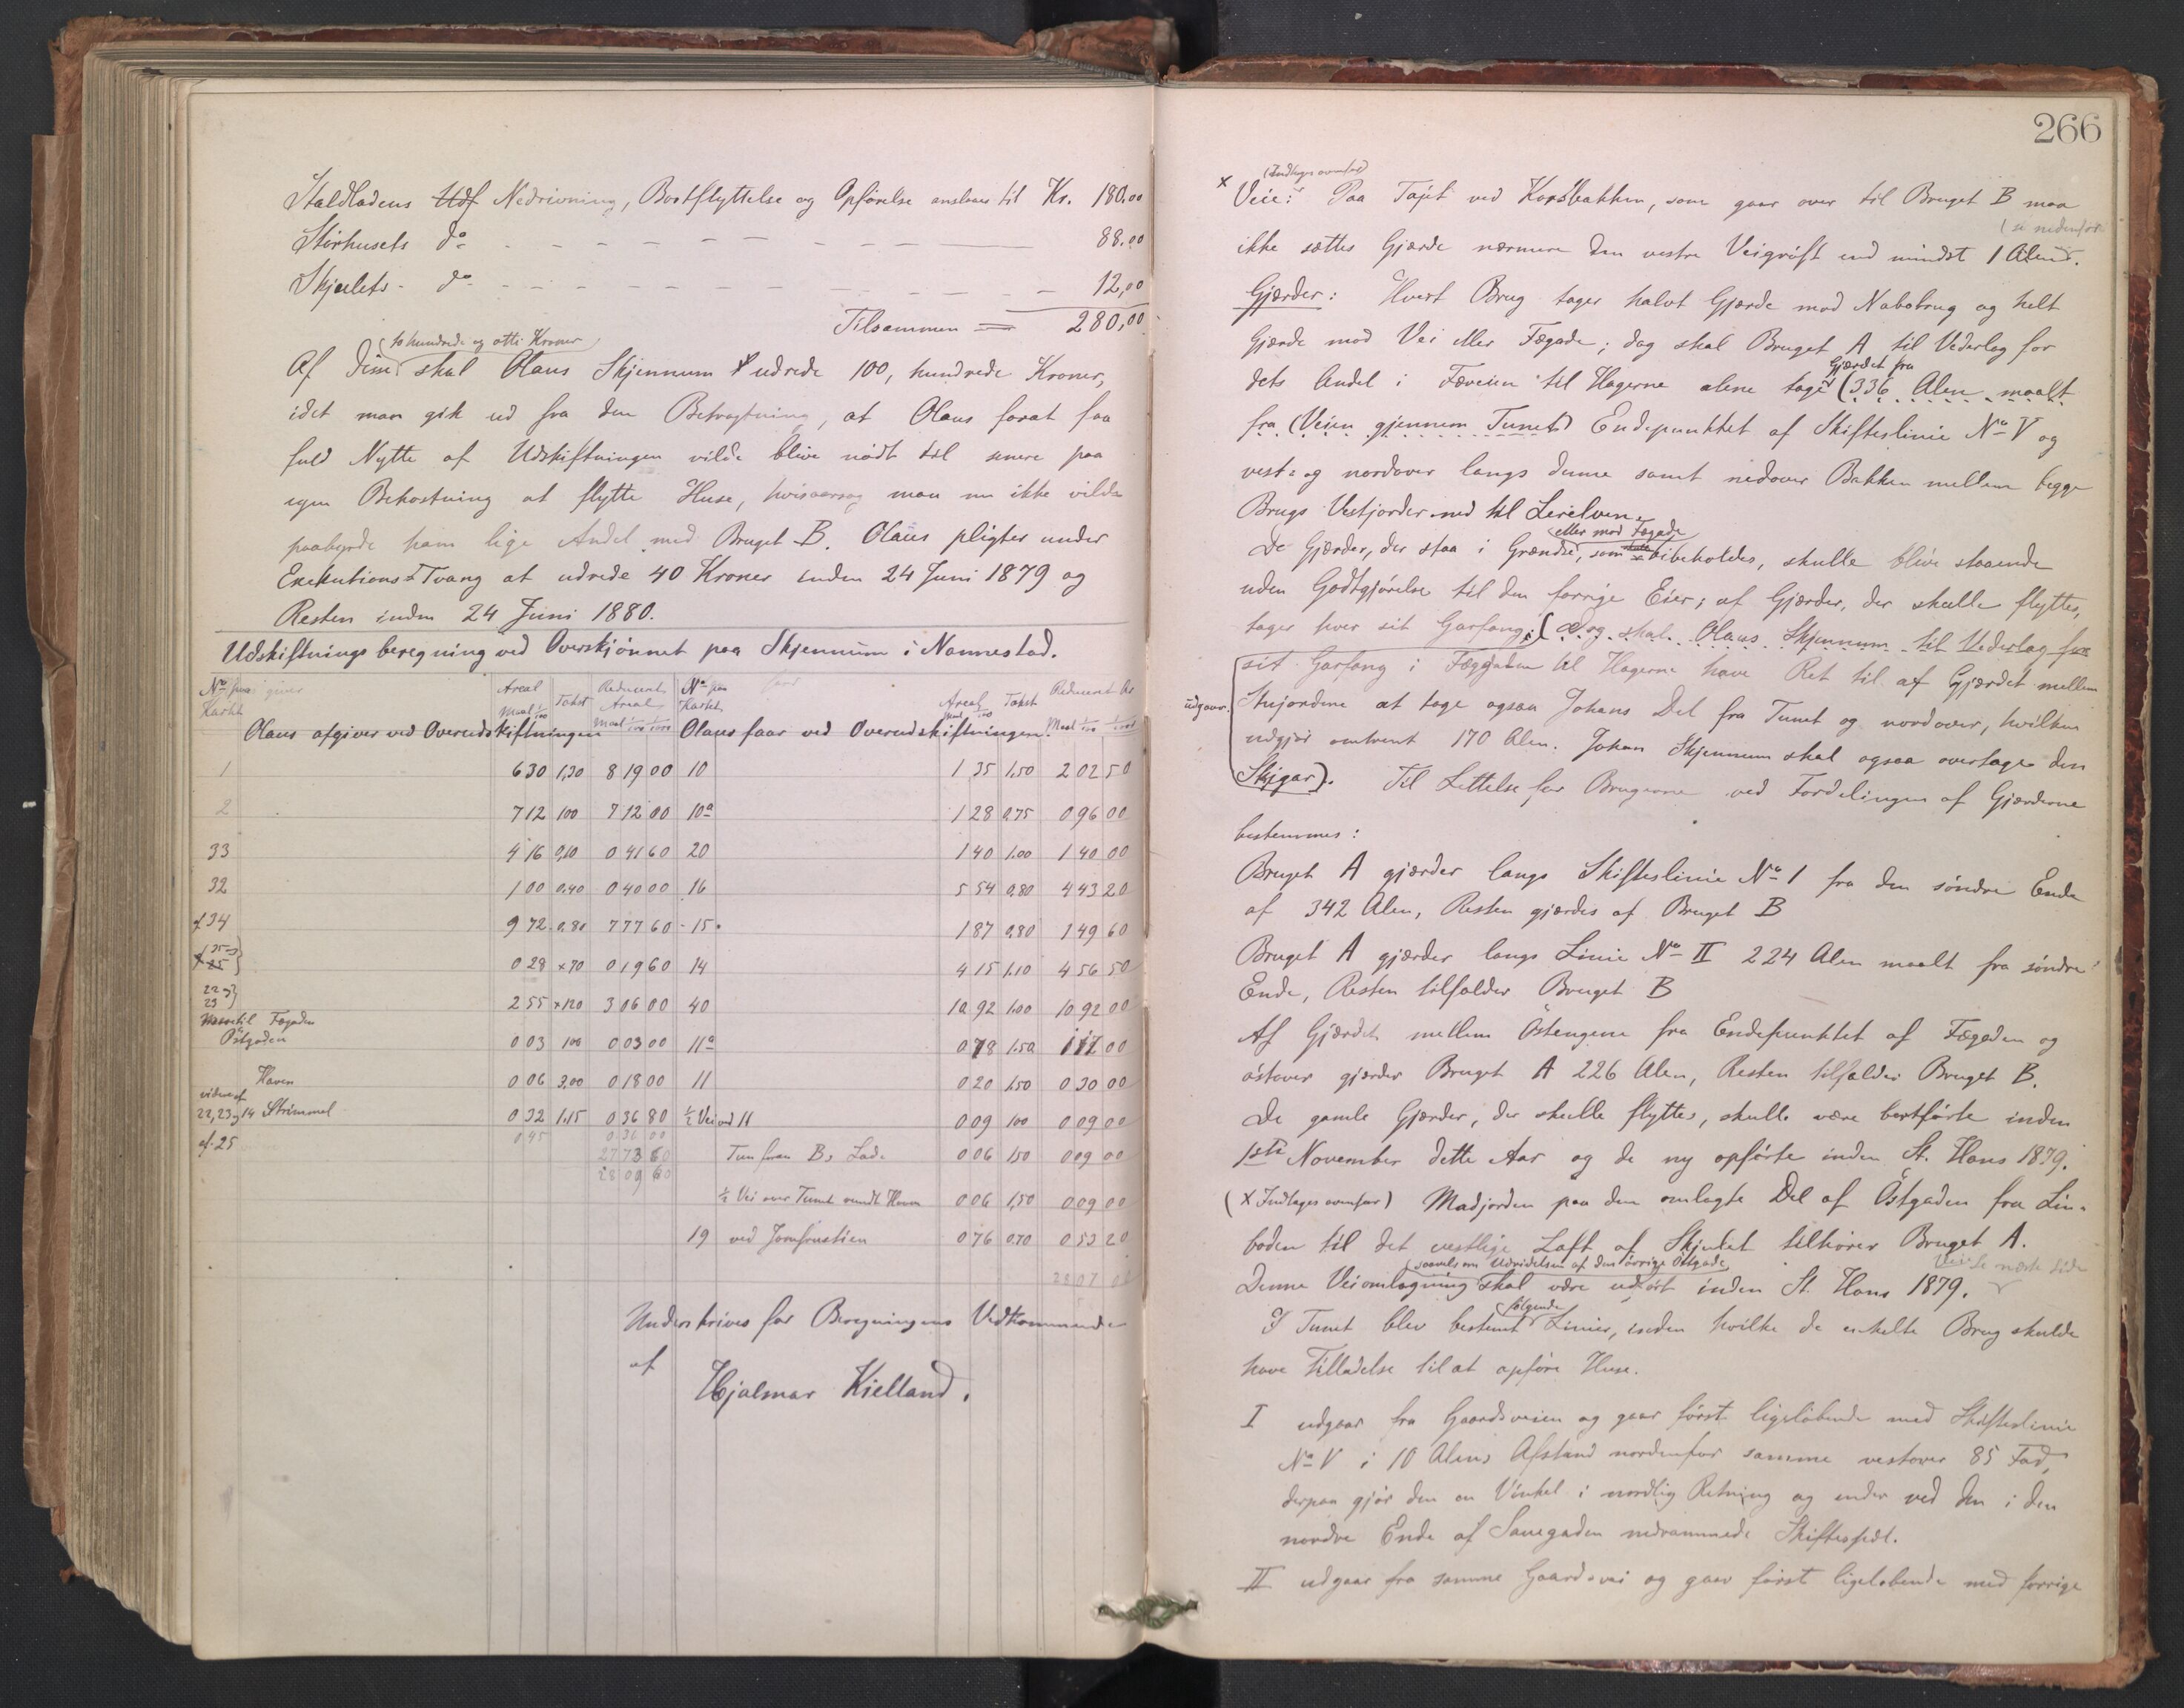 Staldladens Udf Nedrivning, Bortflyttelse og Opförelse anslaaes til Kr. 180.00
Störhusets do 88.00
Skjulets do 12,00
Tilsammen = 280,00
(to hundrede og otti Kroner
Af disse skal Olaus Skjennum udrede 100, hundrede Kroner,
idet man gik ud fra den Betragtning, at Olaus forat faa
fuld Nytte af Udskiftningen vilde blive nödt til senere paa
egen Bekostning at flytte Huse, hvisaarsag man nu ikke vilde
paabyrde ham lige Andel med Bruget B. Olaus pligter under
Exekutions-Tvang at udrede 40 Kroner inden 24 Juni 1879 og
Resten inden 24 Juni 1880.
Udskiftningsberegning ved Overskjönnet paa Skjennum i Nannestad.
No paa Kartet giver Areal Maal 1/100 Takst Reduceret Areal Maal 1/100 1/1000 No paa Kartet faar Areal Maal 1/100 Takst Reduceret Ar Maal 1/100 1/1000
Olaus afgiver ved Overudskiftningen Olaus faar ved Overudskiftningen.
1 6 30 1,30 8 19 00 10 1 35 1.50 2 02 50
2 7 12 100 7 12 00 10a 1 28 0.75 0 96 00
33 4 16 0,10 0 41 60 20 1 40 1.00 1 40 00
32 1 00 0.40 0 40 00 16 5 54 0.80 4 43 20
af 34 9 72 0.80 7 77 60 15 1 87 0,80 1 49 60
0 28 ×70 0 19 60 14 4 15 1.10 4 56 50
22 og 23 2 55 ×120 3 06 00 40 10 92 1.00 10 92 00
til Fægaden
Östgaden 0 03 100 0 03 00 11a 0 78 1.50 1 17 00
Haven 0 06 3,00 0 18 00 11 0 20 1.50 0 30 00
videre af
22, 23 og 14 Strimmel 0 32 1.15 0 36 80 ½ Vei ved 11 0 09 100 0 09 00
af 25 0 45 0 36 00
27 73 60 Tun foran Bs Lade 0 06 150 0 09 00
28 09 60
½ Vei over Tunet rundt Haven 0 06 1,50 0 09 00
19 ved Jomfrustien 0 76 0.70 0 53 20
28 07
Underskrives for Beregningens Vedkommende
af
Hjalmar Kielland.
266
(Indtages ovenfor)
× Veie: Paa Tajet ved Korsbakken, som gaar over til Bruget B maa
(se nedenfor
ikke sættes Gjærde nærmere den vestre Veigröft end mindst 1 Alen.
Gjærder: Hvert Brug tager halvt Gjærde mod Nabobrug og helt
Gjærde mod Vei eller Fægade; dog skal Bruget A til Vederlag for
Gjærdet fra
dets Andel i Fæveien til Hagerne alene tage (336 Alen maalt
fra (Veien gjennem Tunet) Endepunktet af Skifteslinie No V og
vest- og nordover langs denne samt nedover Bakken mellem begge
Brugs Vestjorder ned til Lerelven.
eller mod Fægade
De Gjærder, der staa i Grændse, som skulle bibeholdes, skulle blive staaende
uden Godtgjörelse til den forrige Eier; af Gjærder, der skulle flyttes,
tager hver sit Garfang; (Og skal Olaus Skjennum til Vederlag for
udgaar. sit Garfang i Fæggaden til Hagerne have Ret til af Gjærdet mellem
Stujordene at tage ogsaa Johans Del fra Tunet og nordover, hvilken
udgjör omtrent 170 Alen. Johan Skjennum skal ogsaa overtage den
Skigar). Til Lettelse for Brugerne ved Fordelingen af Gjærderne
bestemmes:
Bruget A gjærder langs Skifteslinie No 1 fra den söndre Ende
af 342 Alen, Resten gjærdes af Bruget B
Bruget A gjærder langs Linie No II 224 Alen maalt fra söndre
Ende, Resten tilfalder Bruget B
Af Gjærdet mellem Östengene fra Endepunktet af Fægaden og
östover gjærder Bruget A 226 Alen, Resten tilfalder Bruget B.
De gamle Gjærder, der skulle flyttes, skulle være bortförte inden
1ste November dette Aar og de ny opförte inden St. Hans 1879.
(× Indtages ovenfor) Madjorden paa den omlagte Del af Östgaden fra Lin-
boden til det vestlige Laft af Skjulet tilhörer Bruget A.
(saavelsom Udvidelsen af den övrige Östgade Se næste Side
Denne Veiomlægning skal være udfört inden St. Hans 1879.
følgende
I Tunet blev bestemt Linier, inden hvilke de enkelte Brug skulde
have Tilladelse til at opföre Huse.
I udgaar fra Gaardsveien og gaar först ligelöbende med Skifteslinie
No V i 10 Alens Afstand nordenfor samme vestover 85 Fod,
derpaa gjör den en Vinkel i nordlig Retning og ender ved den i den
nordre Ende af Sauegaden nedrammede Skiftespæl.
II udgaar fra samme Gaardsvei og gaar först ligelöbende med forrige